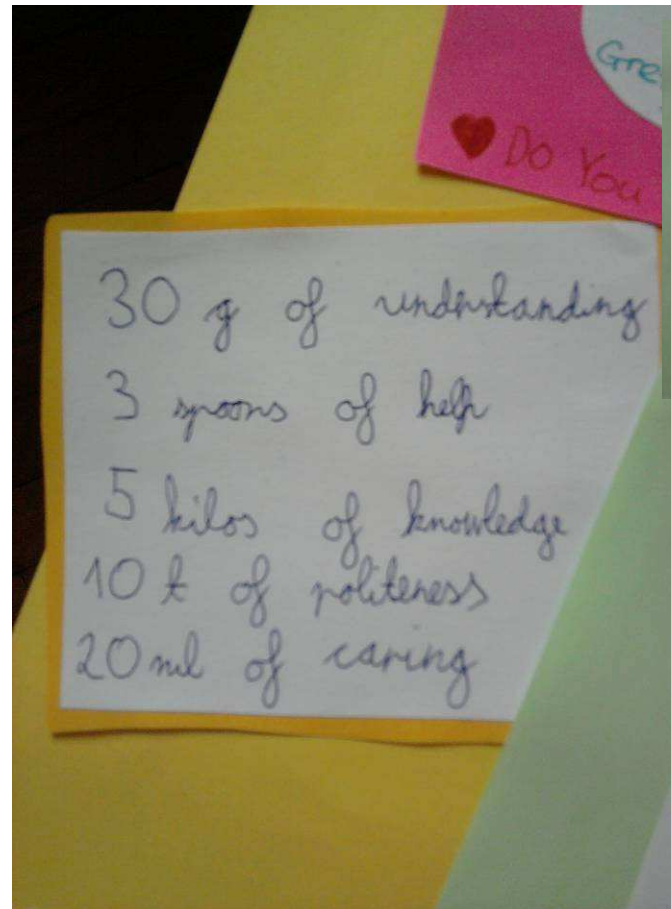 Gre
♥ Do You
30 g of understanding
3 spoons of help
5 kilos of knowledge
10 t of politeness
20 ml of caring